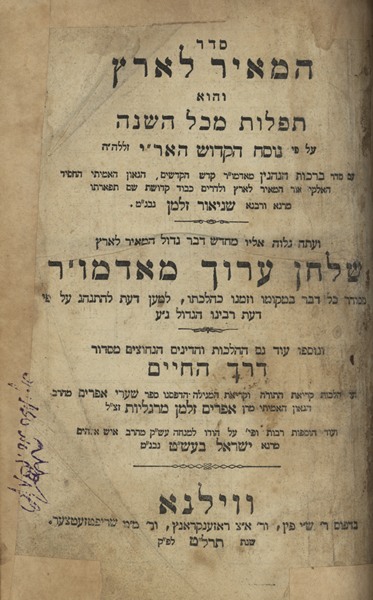 סדר
המאיר לארץ
והוא
תפלות מכל השנה
על פי נוסח הקדוש האר״י זללה״ה
עם סדר ברכות הנהנין מאדמו״ר קדש הקדשים, הגאון האמיתי החסיד
האלקי אור המאיר לארץ ולדרים כבוד קדושת שם תפארתו
מרנא ורבנא שניאור זלמן נבג״מ.
ועתה נלוה אליו מחדש דבר גדול המאיר לארץ
שלחן ערוך מאדמו״ר
מסודר כל דבר במקומו וזמנו כהלכתו, למען דעת להתנהג על פי
דעת רבינו הגדול נ״ע
ונוספו עוד גם ההלכות והדינים הנחוצים מסדור
דרך החיים
הלכות קריאת התורה וקריאת המגילה הדפסנו ספר שערי אפרים מהרב
הגאון האמיתי מרן אפרים זלמן מרגליות זצ״ל
ועוד הוספות רבות ופי׳ על הודו למנחה עש״ק מהרב איש אלהים
מרנא ישראל בעש״ט נבג״מ
ווילנא
בדפוס ר׳ ש״י פין, ור׳ א״צ ראזענקראנץ, ור׳ מ״מ שריפטזעטצער.
שנת תרל״ט לפ״ק